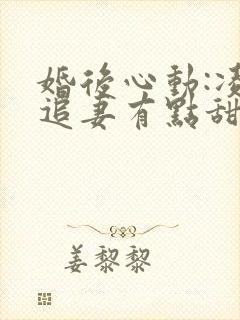 婚後心動:凌
追妻有點甜
姜黎黎